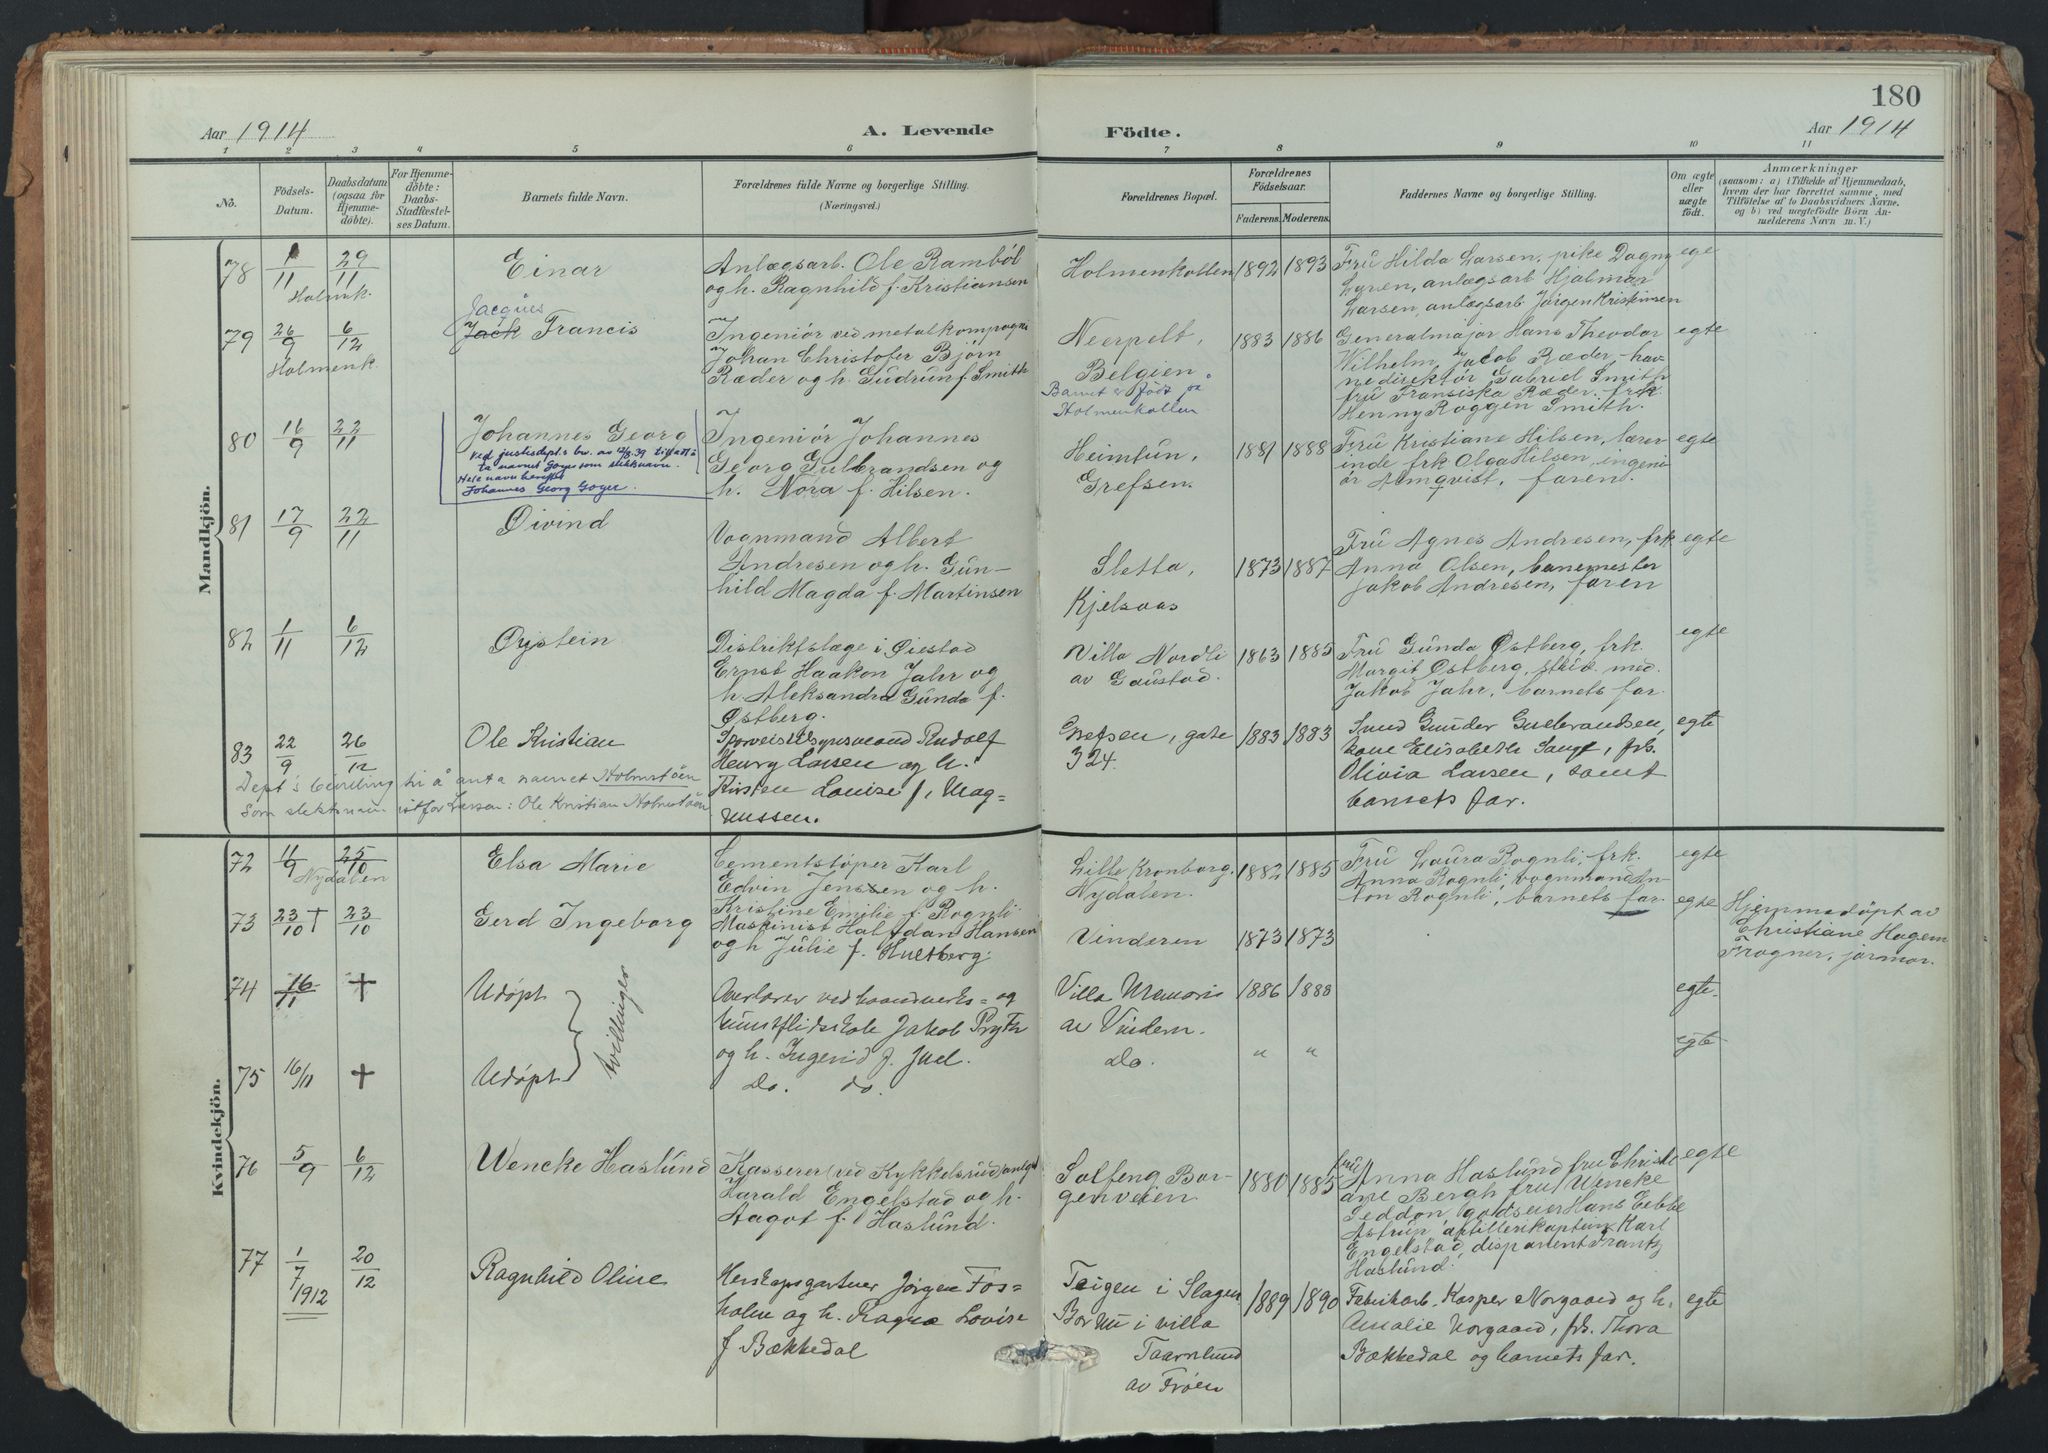 180
Aar 1914
A. Levende
Födte.
Aar 1914
1 2 3 4 5 6 7 8 9 10 11
No.
Födsels-
Datum.
Daabsdatum
(ogsaa for
Hjemme-
döbte).
For Hjemme-
döbte:
Daabs-
Stadfæstel-
ses Datum.
Barnets fulde Navn.
Forældrenes fulde Navne og borgerlige Stilling.
(Næringsvei.)
Forældrenes Bopæl.
Forældrenes
Födselsaar.
Faderens. Moderens.
Faddernes Navne og borgerlige Stilling.
Om ægte
eller
uægte
födt.
Anmærkninger
(saasom: a) i Tilfælde af Hjemmedaab,
hvem der har forrettet samme, med
Tilföielse af to Daabsvidners Navne,
og b) ved uægtefödte Börn An-
melderens Navn m. V.)
Mandkjön.
78
1/11
Holmenk.
29/11
Einar
Anlægsarb. Ole Rambøl
og h. Ragnhild f. Kristiansen
Holmenkollen
1892 1893
Fru Hilda Larsen, pike Dagny
Lyren, anlægsarb Hjalmar
Larsen, anlægsarb Jørgen Kristensen
ege
79
26/9
Holmenk.
6/12
Jacques
Jack Francis
Ingeniør ved metalkompagni
Johan Christofer Bjørn
Ræder og h. Gudrun f. Smith
Neerpelt,
Belgien
Barnet er født på
Holmenkollen
1883 1886
Generalmajor Hans Theodor
Wilhelm Jacob Ræder, hav-
nedirektør Gabriel Smith
fru Franciska Ræder, frk.
Henny Roggen Smith.
egte
80
16/9
22/11
Johannes Georg
ved justisdept.s brev av 12/8.39 tillatt å
ta navnet Goyer som slektsnavn.
Hele navn herefter
Johannes Georg Goyer.
Ingeniør Johannes
Georg Gulbrandsen og
h. Nora f. Hilsen.
Heimtun,
Grefsen.
1881 1888
Fru Kristiane Hilsen, lærer-
inde frk Olga Hilsen, ingeni-
ør Almqvist, faren.
egte
81
17/9
22/11
Øivind
Vognmand Albert
Andresen og h. Gun-
hild Magda f. Martinsen
Sletta,
Kjelsaas
1873 1887
Fru Agnes Andresen, frk
Anna Olsen, banemester
Jakob Andresen, faren
egte
82
1/11
6/12
Øystein
Distriktslæge i Øiestad
Ernst Haakon Jahr og
h. Aleksandra Gunda f.
Østberg.
Villa Nordli
av Gaustad.
1863 1885
Fru Gunda Østberg, frk.
Margit Østberg, stud. med.
Jakob Jahr, barnets far.
egte
83
22/9
26/12
Ole Kristian
Sporveis Rudolf
Henry Larsen og h.
Kirsten Louise f. Mag-
nussen.
Grefsen, gate
3 24.
1883 1883
Gunder Gulbrandsen,
kone Elisabeth frk.
Olivia Larsen, samt
barnets far.
egte
Dept's bevilling til å anta navnet Holmstøen
som slektsnavn istf. for Larsen: Ole Kristian Holmstøen
Kvindekjön.
72
11/9
Nydalen
25/10
Elsa Marie
Cementstøper Karl
Edvin Jensen og h.
Kristine Emilie f. Rognli.
Lille Kronborg,
Nydalen.
1882 1885
Fru Laura Rognli, frk.
Anna Rognli, vognmand An-
ton Rognli, barnets far.
egte
73
23/10 †
23/10
Gerd Ingeborg
Maskinist Halfdan Hansen
og h Julie f. Hultberg.
Vinderen
1873 1873
egte
Hjemmedøpt av
Christiane Hagem
Frogner, jormor.
74
16/11
†
Udøpt
tvillinger
Overlærer ved haandverks- og
kunstflidskole Jakob Prytz
og h. Ingerid f. Juel.
Villa
av Vindern.
1886 1888
egte
75
16/11
†
Udøpt
Do. do.
Do.
" "
egte
76
5/9
6/12
Wencke Haslund
Kasserer (ved Kykkelsrud) anlæg
Harald Engelstad og h.
Aagot f. Haslund.
Solfeng Bor-
genveien
1880 1885
fru Anna Haslund fru Christi-
ane Bergh fru Wencke
Seddon, godseier Hans Ebbe
Astrup artillerikaptein Karl
Engelstad, disponent Frantz
Haslund.
egte
77
1/7
1912
20/12
Ragnhild Oline
Herskapsgartner Jørgen Fos-
holm og h. Ragna Lovise
f Bækkedal
Teigen i Slagen
Bor nu i villa
Taarnlund
av Frøen
1889 1890
Fabrikarb. Kasper Norgaard og h.
Amalie Norgaard, frk. Thora
Bækkedal og barnets far.
egte